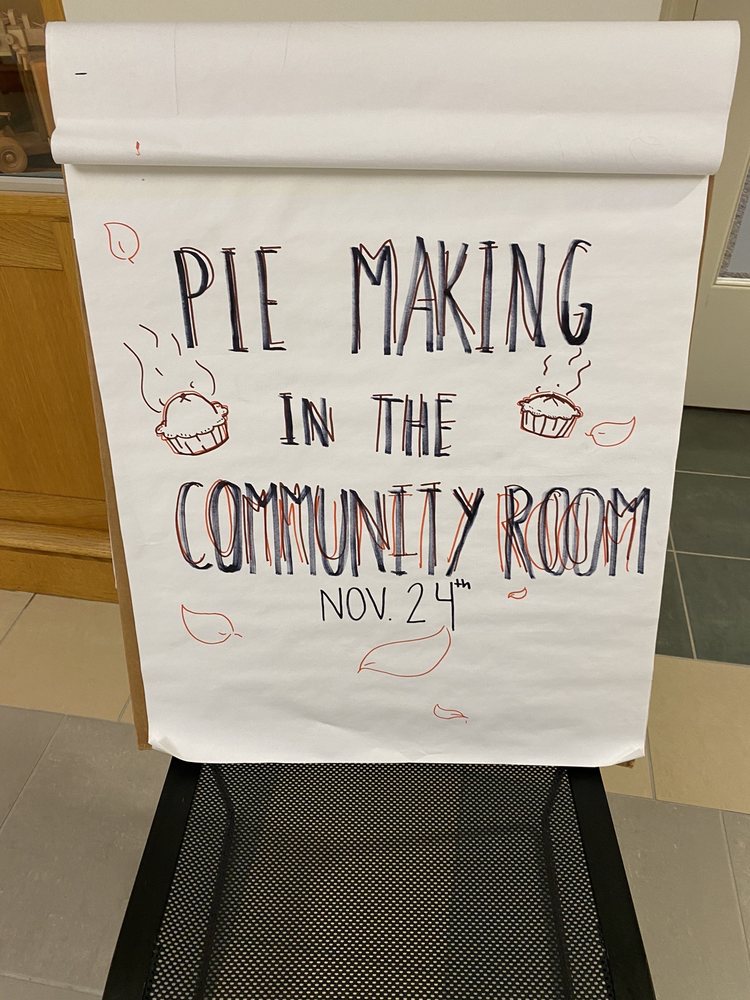 PIE MAKING
IN THE
COMMUNITY ROOM
NOV. 24th